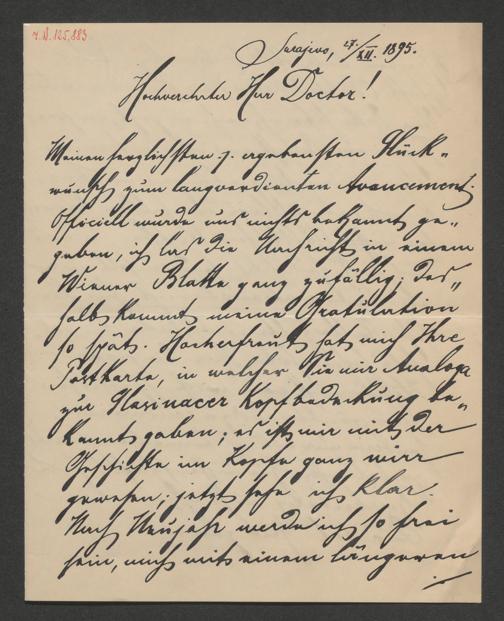 I. N. 125.883
Sarajevo, 27./XII. 1895.
Hochverehrter Herr Doctor!
Meinen herzlichsten u. ergebensten Glück-
wunsch zum langverdienten Avancement.
Officiell wurde uns nichts bekannt ge-
geben, ich las die Nachricht in einem
Wiener Blatte ganz zufällig; des-
halb kommt meine Gratulation
so spät. Hocherfreut hat mich Ihre
Postkarte, in welcher Sie mir Analoga
zur Glasinacer Kopfbedeckung be-
kannt gaben; es ist mir mit der
Geschichte im Kopfe ganz wirr
gewesen; jetzt sehe ich klar.
Nach Neujahr werde ich so frei
sein, mich mit einem längeren